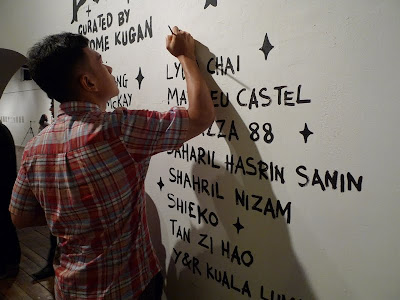 CURATED BY
OME KUGAN
NG
McKAY
CHAI
CASTEL
88
SAHARIL HASRIN SANIN
SHAHRIL NIZAM
SHIEKO
TAN ZI HAO
Y&R KUALA